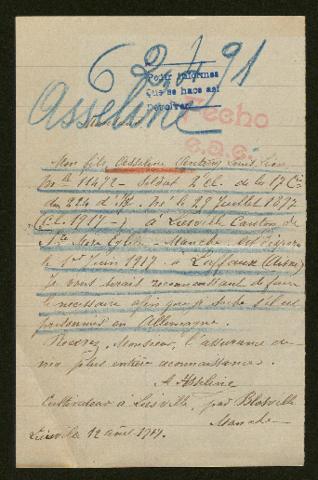 6
91
Pedir informes
que se hace así
devolver
Asseline
Fecho
Monsieur
Mon fils Asseline
Mle 11472 - Soldat 2e Cl. de la 17 Cie
du 224 d'Ie. Né le 29 Juillet 1897
(Cl. 1917) à Liesville Canton de
Ste Mère Eglise - Manche est disparu
le 1er Juin 1917 - à Laffaux (Aisne)
je vous serais reconnaissant de faire
le nécessaire afin que je sache s'il est
prisonnier en Allemagne.
Recevez, Monsieur, l'assurance de
ma plus entière reconnaissance.
A Asseline
Cultivateur à Liesville, par Blosville
Manche
Liesville 12 août 1917.